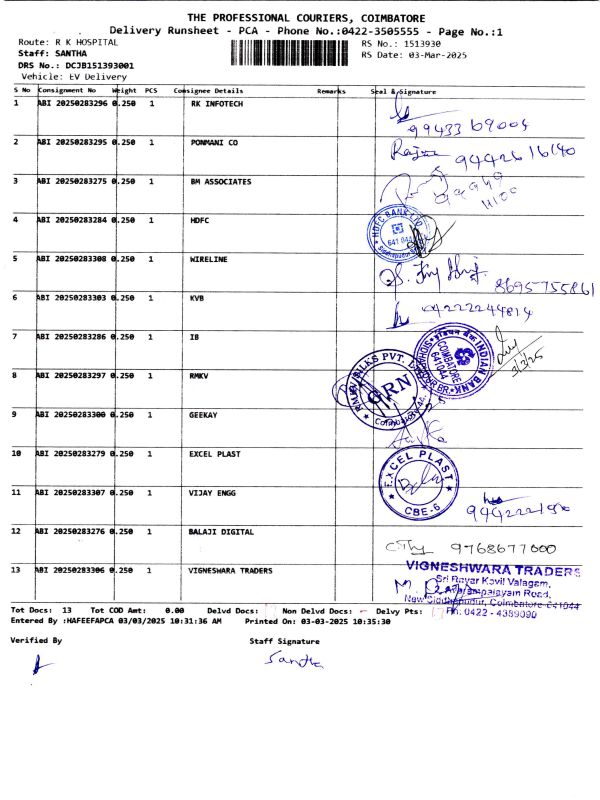 THE PROFESSIONAL COURIERS, COIMBATORE
Delivery Runsheet - PCA - Phone No.:0422-3505555 - Page No.:1
Route: R K HOSPITAL
RS No.: 1513930
Staff: SANTHA
RS Date: 03-Mar-2025
DRS No.: DCJB151393001
Vehicle: EV Delivery
S No Consignment No Weight PCS Consignee Details Remarks Seal & Signature
1 ABI 20250283296 0.250 1 RK INFOTECH
2 ABI 20250283295 0.250 1 PONMANI CO
3 ABI 20250283275 0.250 1 BM ASSOCIATES
4 ABI 20250283284 0.250 1 HDFC
HDFC BANK LTD
641 044
5 ABI 20250283308 0.250 1 WIRELINE
8695755861
6 ABI 20250283303 0.250 1 KVB
04222244814
7 ABI 20250283286 0.250 1 IB
INDIAN BANK
COIMBATORE
641044
3/3/25
8 ABI 20250283297 0.250 1 RMKV
SILKS PVT.
GRN
9 ABI 20250283300 0.250 1 GEEKAY
10 ABI 20250283279 0.250 1 EXCEL PLAST
EXCEL PLAST
CBE-6
11 ABI 20250283307 0.250 1 VIJAY ENGG
12 ABI 20250283276 0.250 1 BALAJI DIGITAL
9768677000
13 ABI 20250283306 0.250 1 VIGNESHWARA TRADERS
VIGNESHWARA TRADERS
Sri Rayar Kovil Valagam,
Avarampalayam Road,
New Siddhapudur, Coimbatore-641044
Ph: 0422 - 4389090
Tot Docs: 13 Tot COD Amt: 0.00 Delvd Docs: Non Delvd Docs: Delvy Pts:
Entered By :HAFEEFAPCA 03/03/2025 10:31:36 AM Printed On: 03-03-2025 10:35:30
Verified By Staff Signature
Santha